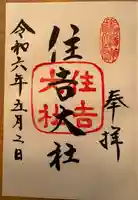 奉拝
住吉大社
住吉
大社
令和六年五月三日